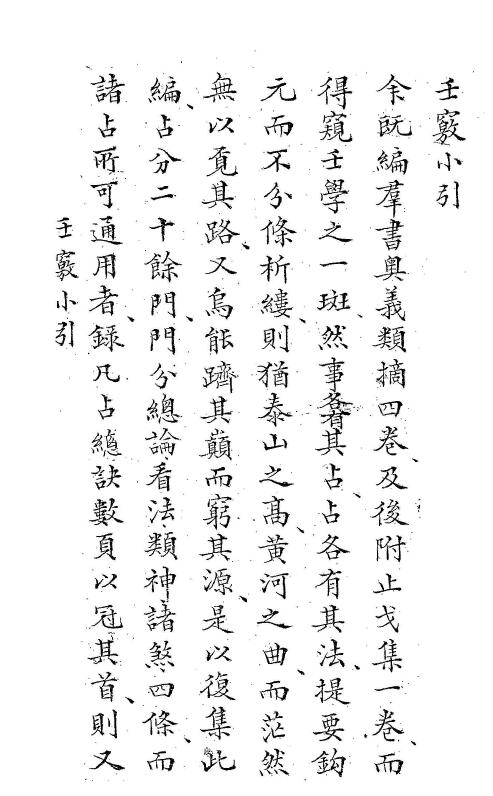 壬竅小引
余既編羣書奥義類摘四卷、及後附止戈集一卷、而
得窺壬學之一斑、然事各有其占、占各有其法、提要鈎
元而不分條析縷、則猶泰山之高、黄河之曲、而茫然
無以覓其路、又烏能躋其巔而窮其源、是以復集此
編、占分二十餘門、門分總論看法類神諸煞四條、而
諸占所可通用者、録凡占總訣數頁以冠其首、則又
壬竅小引